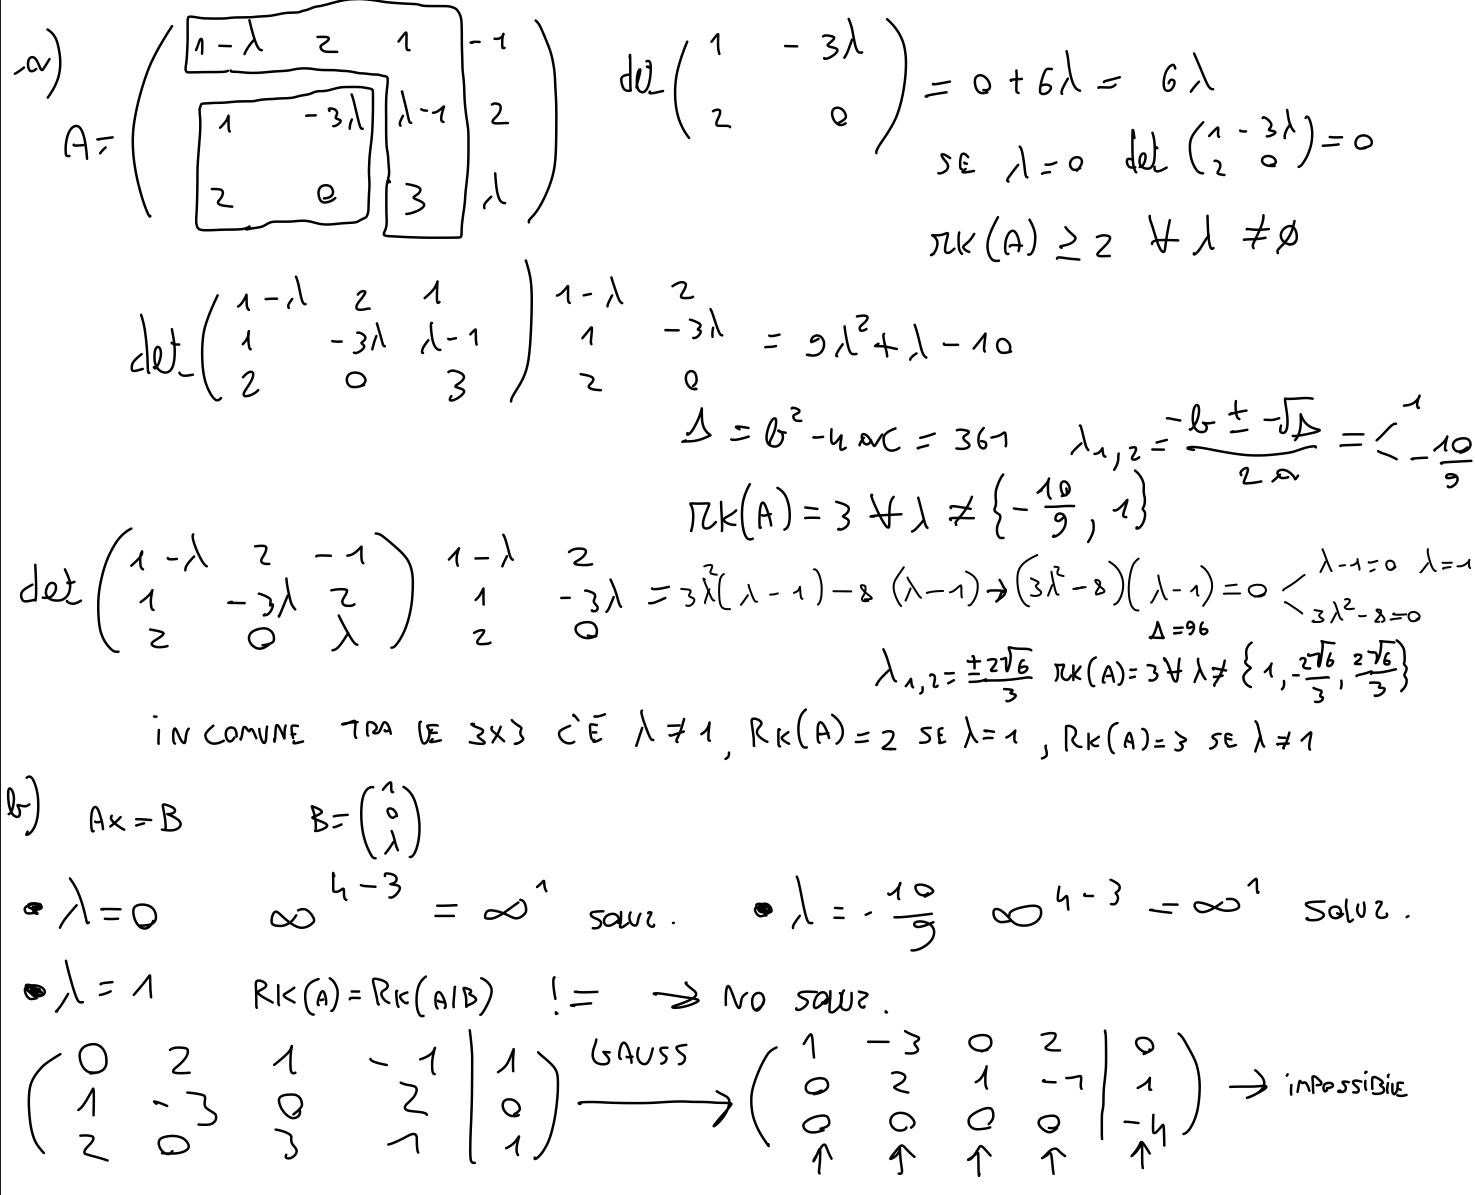 a) A = ( 1-λ 2 1 -1
1 -3λ λ-1 2
2 0 3 λ )
det ( 1 -3λ
2 0 ) = 0 + 6λ = 6λ
SE λ=0 det ( 1 -3λ
2 0 ) = 0
RK(A) ≥ 2 ∀ λ ≠ 0
det ( 1-λ 2 1 ) 1-λ 2
1 -3λ λ-1 1 -3λ = 9λ² + λ - 10
2 0 3 2 0
Δ = b² - 4ac = 361 λ1,2 = (-b ± √Δ)/2a = < 1
-10/9
RK(A) = 3 ∀ λ ≠ {-10/9, 1}
det ( 1-λ 2 -1 ) 1-λ 2
1 -3λ 2 1 -3λ = 3λ²(λ-1) - 8 (λ-1) → (3λ²-8)(λ-1) = 0 < λ-1=0 λ=1
2 0 λ 2 0 3λ²-8=0
Δ=96
λ1,2 = ±2√6/3 RK(A)=3 ∀ λ ≠ {1, -2√6/3, 2√6/3}
IN COMUNE TRA LE 3X3 C'È λ ≠ 1, RK(A) = 2 SE λ=1, RK(A)=3 SE λ≠1
b) Ax = B B = ( 1
0
λ )
• λ=0 ∞⁴⁻³ = ∞¹ SOLUZ. • λ = -10/9 ∞⁴⁻³ = ∞¹ SOLUZ.
• λ = 1 RK(A) = RK(A|B) != → NO SOLUZ.
( 0 2 1 -1 | 1
1 -3 0 2 | 0
2 0 3 1 | 1 )
GAUSS →
( 1 -3 0 2 | 0
0 2 1 -1 | 1
0 0 0 0 | -4 )
→ IMPOSSIBILE
↑ ↑ ↑ ↑ ↑